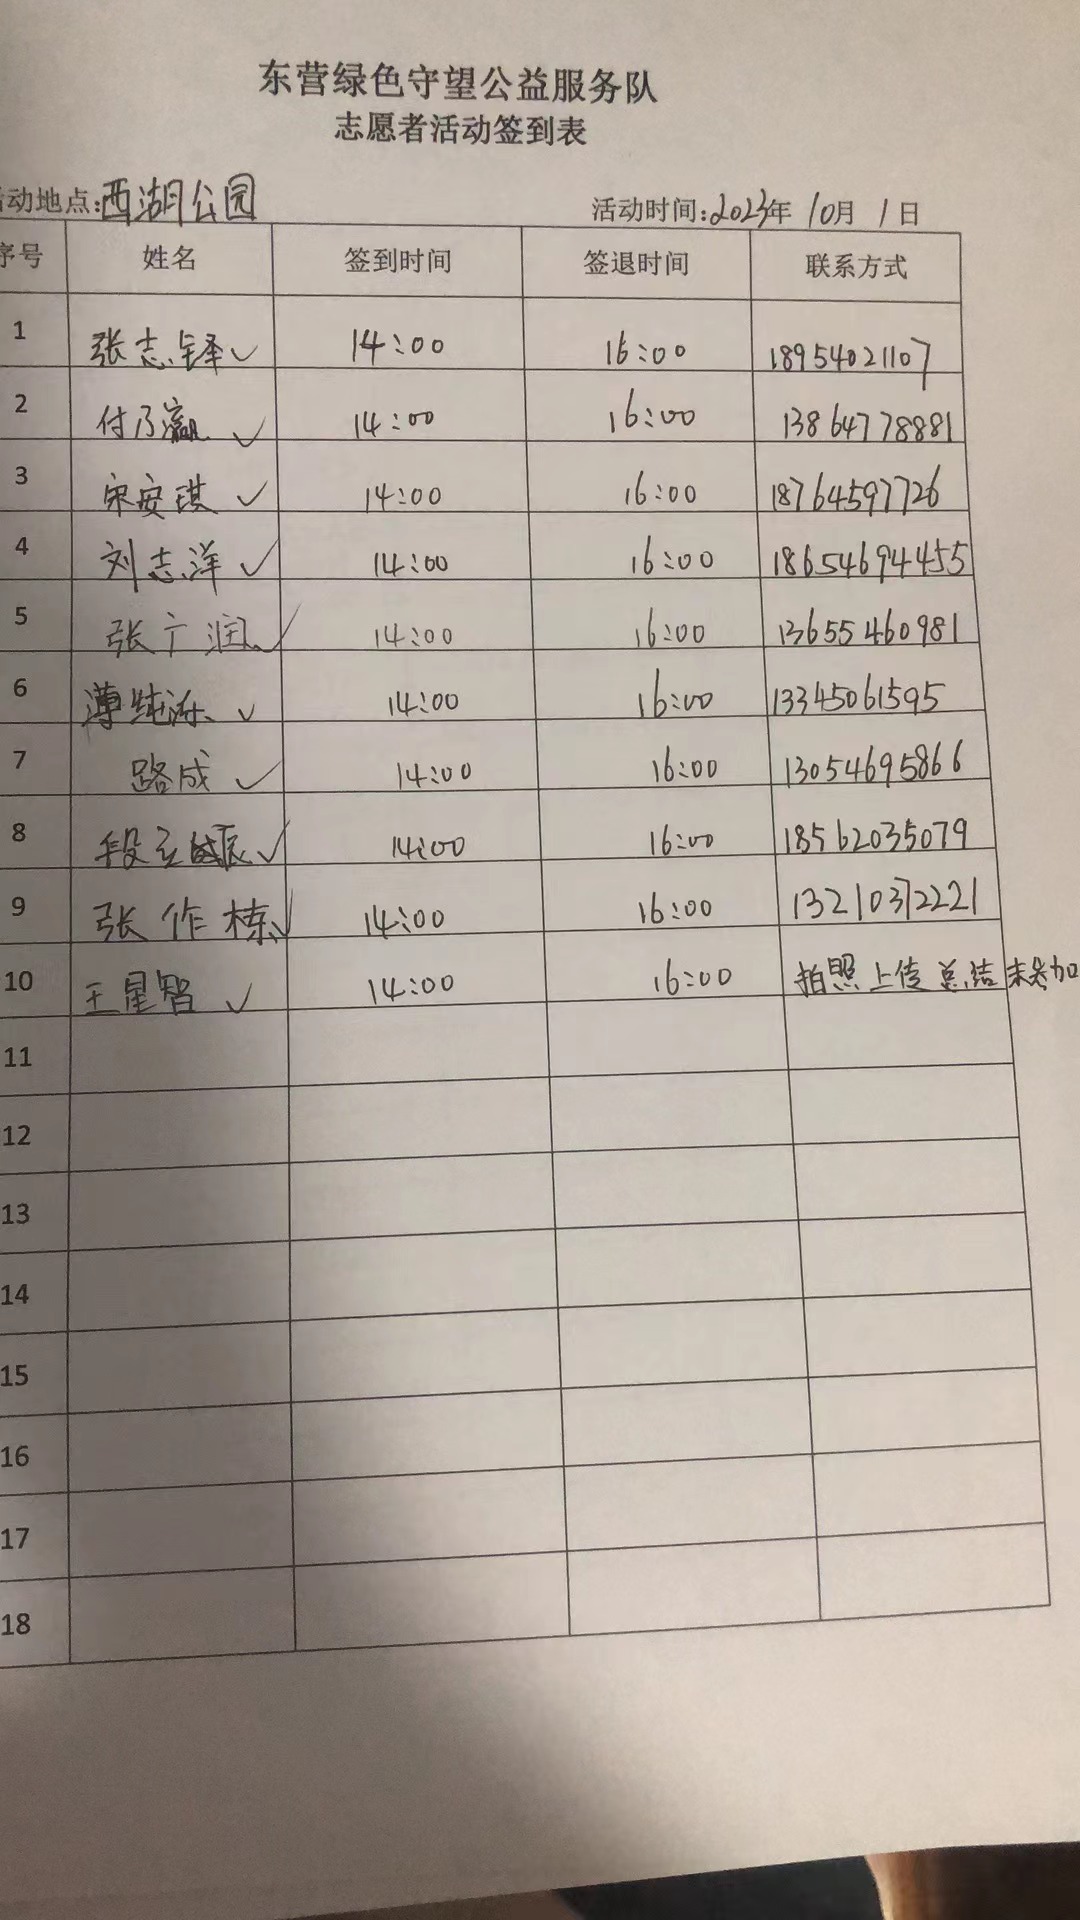 东营绿色守望公益服务队
志愿者活动签到表
动地点:西湖公园 活动时间:2023年 10月 1日
序号 姓名 签到时间 签退时间 联系方式
1 张志铎✓ 14:00 16:00 18954021107
2 付乃瀛 ✓ 14:00 16:00 13864778881
3 宋安琪 ✓ 14:00 16:00 18764597726
4 刘志洋 ✓ 14:00 16:00 18654694455
5 张广润✓ 14:00 16:00 13655460981
6 薄纯 ✓ 14:00 16:00 13345061595
7 路成 ✓ 14:00 16:00 13054695866
8 段 ✓ 14:00 16:00 18562035079
9 张作栋✓ 14:00 16:00 13210372221
10 王星智 ✓ 14:00 16:00 拍照上传总结未参加
11
12
13
14
15
16
17
18